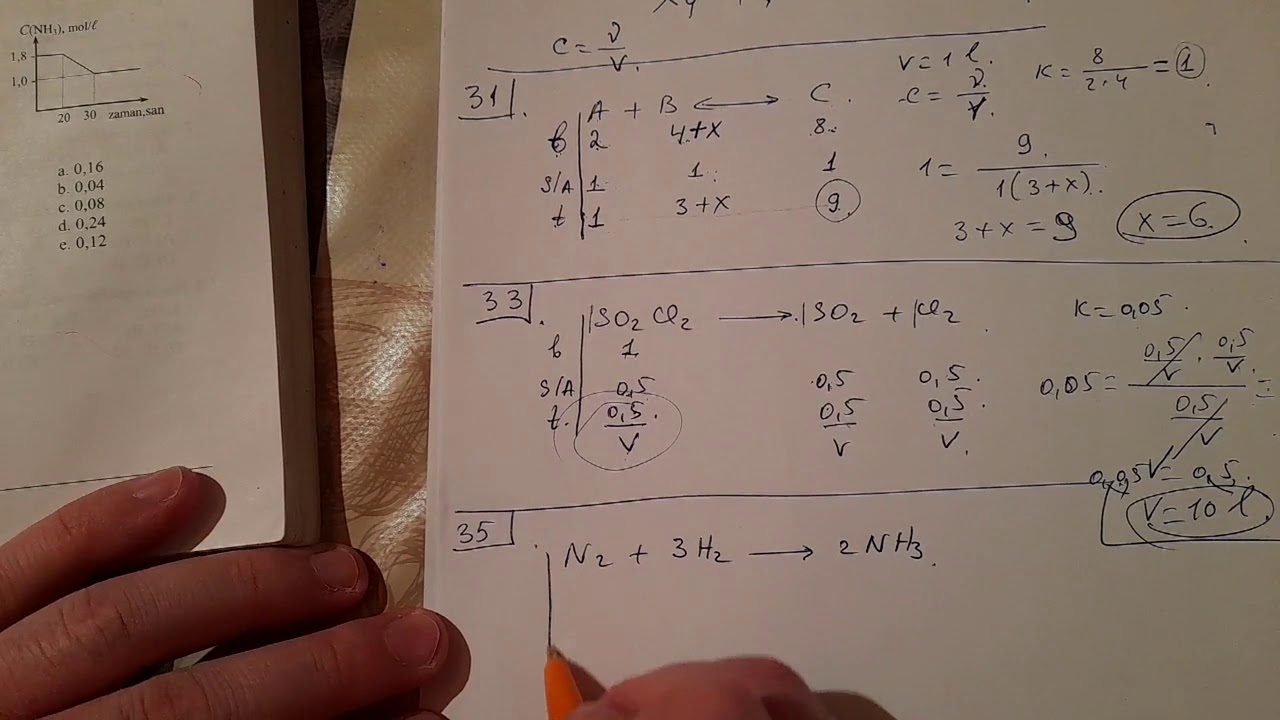 C(NH₃), mol/ℓ
1,8
1,0
20 30 zaman,san
a. 0,16
b. 0,04
c. 0,08
d. 0,24
e. 0,12
C = ν/V.
31.
A + B ⟷ C.
b 2 4+x 8.
S/A 1 1 1
t 1 3+x 9
V = 1 l.
C = ν/V.
K = 8/(2·4) = 1.
1 = 9/(1(3+x)).
3+x = 9
x = 6.
33.
1SO₂Cl₂ ⟶ 1SO₂ + 1Cl₂
b 1
S/A 0,5 0,5 0,5.
t. 0,5/V. 0,5/V 0,5/V.
K = 0,05.
0,05 = (0,5/V · 0,5/V)/(0,5/V) =
0,05V = 0,5.
V = 10 l
35.
N₂ + 3H₂ ⟶ 2NH₃.